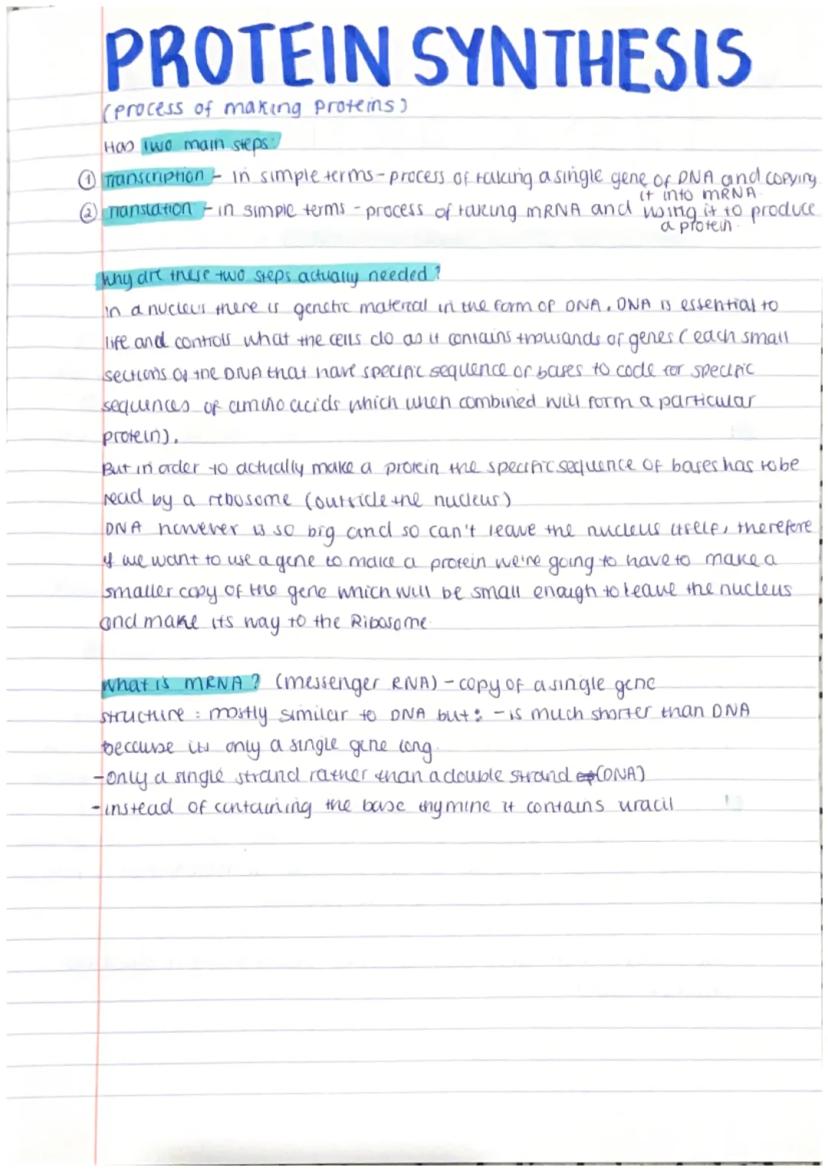 PROTEIN SYNTHESIS
(process of making proteins)
Has two main steps:
① Transcription - in simple terms - process of taking a single gene of DNA and copying
it into mRNA
② Translation - in simple terms - process of taking mRNA and using it to produce
a protein.
Why are these two steps actually needed?
In a nucleus there is genetic material in the form of DNA. DNA is essential to
life and controls what the cells do as it contains thousands of genes (each small
sections of the DNA that have specific sequence of bases to code for specific
sequences of amino acids which when combined will form a particular
protein).
But in order to actually make a protein the specific sequence of bases has to be
read by a ribosome (outside the nucleus)
DNA however is so big and so can't leave the nucleus itself, therefore
if we want to use a gene to make a protein we're going to have to make a
smaller copy of the gene which will be small enough to leave the nucleus
and make its way to the Ribosome
What is mRNA? (messenger RNA) - copy of a single gene
structure : mostly similar to DNA but: - is much shorter than DNA
because its only a single gene long
- only a single strand rather than a double strand (DNA)
- instead of containing the base thymine it contains uracil